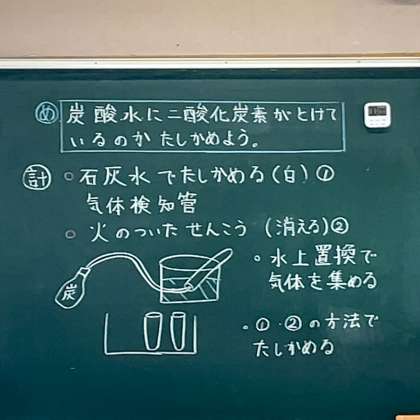 め 炭酸水に二酸化炭素がとけて
いるのか たしかめよう。
計 ○石灰水でたしかめる(白)①
気体検知管
○火のついたせんこう (消える)②
・水上置換で
気体を集める
炭
・①・②の方法で
たしかめる